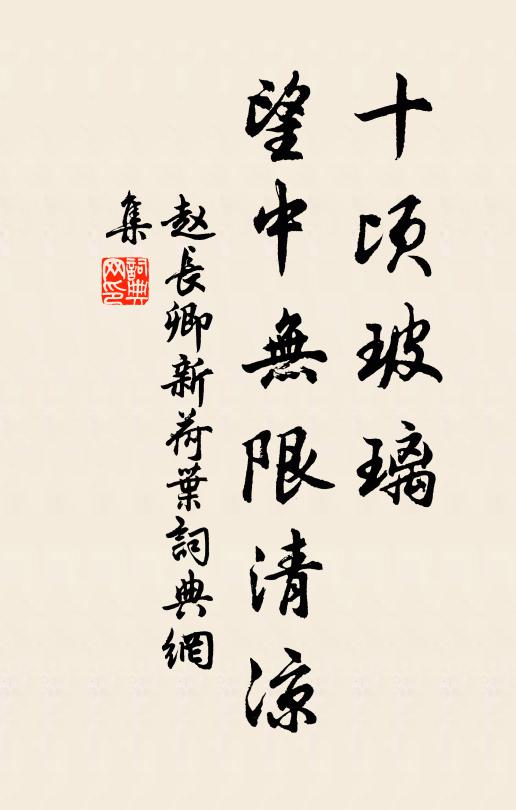 十頃玻璃
望中無限清涼
赵長卿新荷葉詞典網
集
詞典
网印